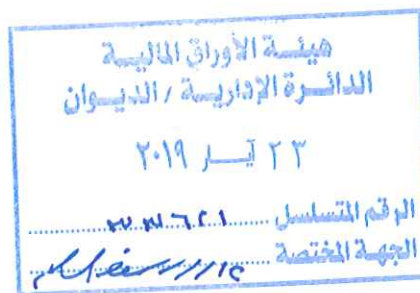 هيئـة الأوراق المالية
الدائـرة الإداريـة / الديـوان
٢٣ آيـار ٢٠١٩
الرقم المتسلسل
الجهة المختصة